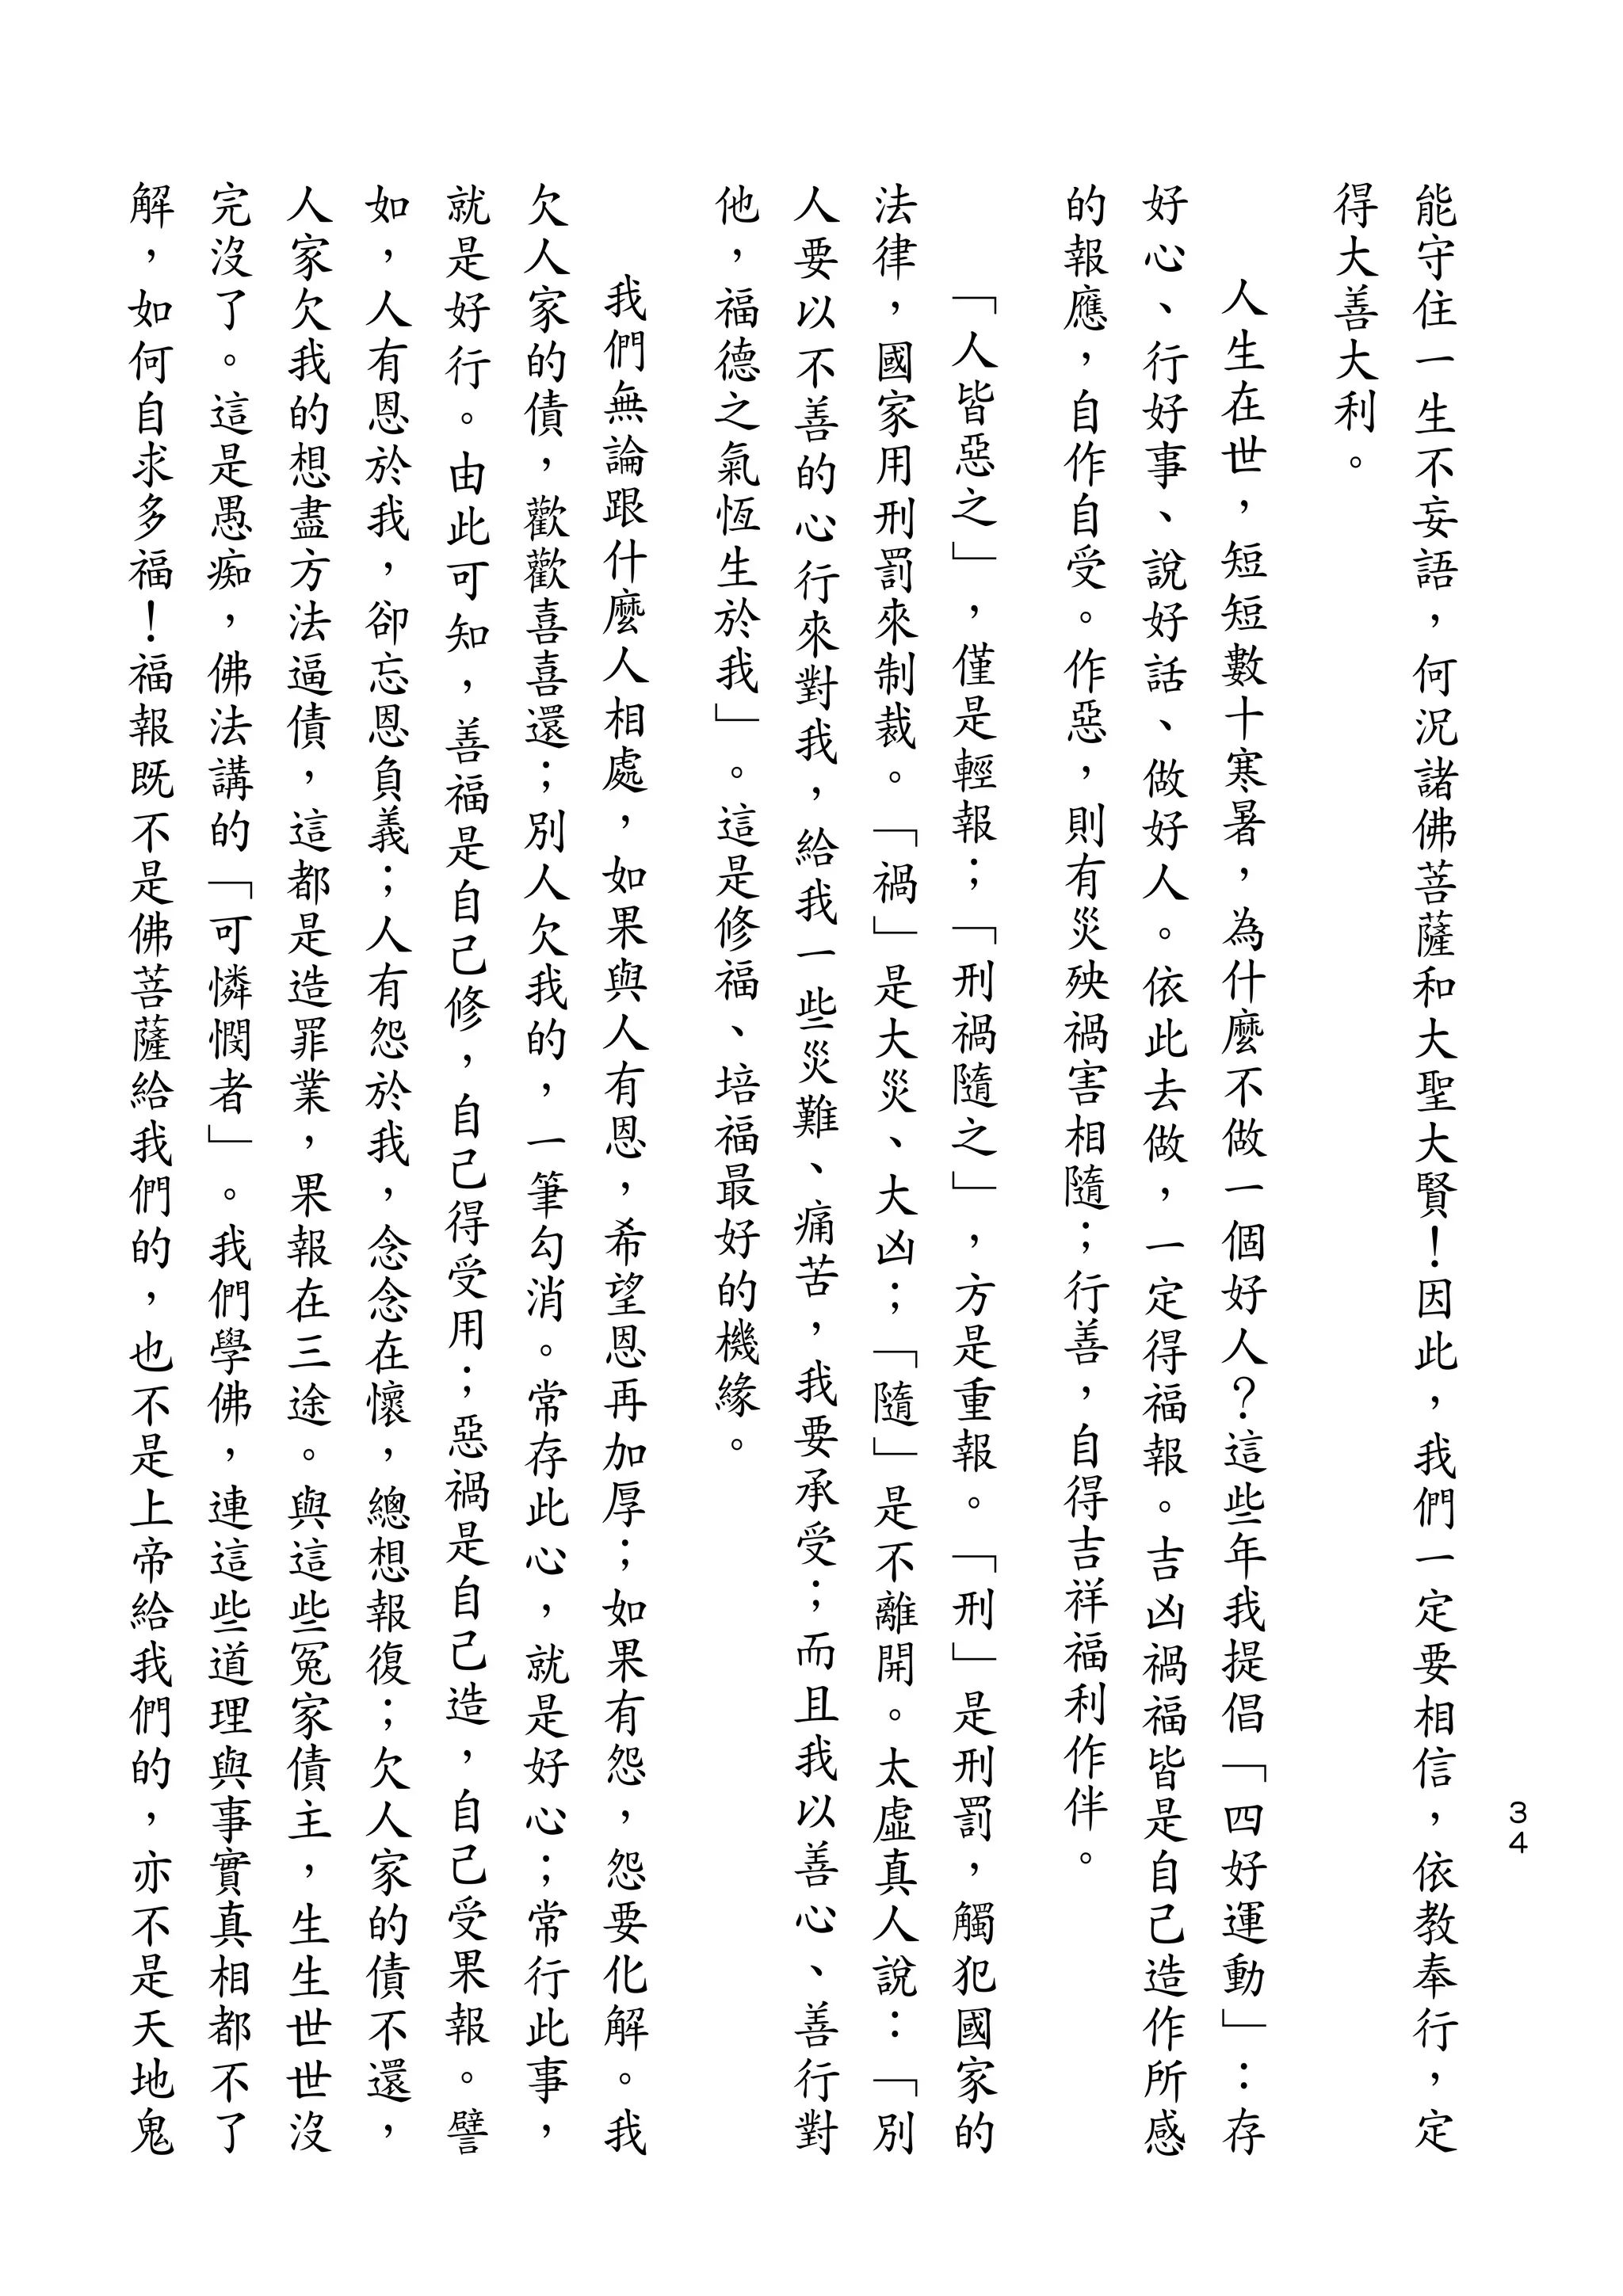 34
能守住一生不妄語，何況諸佛菩薩和大聖大賢！因此，我們一定要相信，依教奉行，定
得大善大利。
人生在世，短短數十寒暑，為什麼不做一個好人？這些年我提倡「四好運動」：存
好心、行好事、說好話、做好人。依此去做，一定得福報。吉凶禍福皆是自己造作所感
的報應，自作自受。作惡，則有災殃禍害相隨；行善，自得吉祥福利作伴。
「人皆惡之」，僅是輕報；「刑禍隨之」，方是重報。「刑」是刑罰，觸犯國家的
法律，國家用刑罰來制裁。「禍」是大災、大凶；「隨」是不離開。太虛真人說：「別
人要以不善的心行來對我，給我一些災難、痛苦，我要承受；而且我以善心、善行對
他，福德之氣恆生於我」。這是修福、培福最好的機緣。
我們無論跟什麼人相處，如果與人有恩，希望恩再加厚；如果有怨，怨要化解。我
欠人家的債，歡歡喜喜還；別人欠我的，一筆勾消。常存此心，就是好心；常行此事，
就是好行。由此可知，善福是自己修，自己得受用；惡禍是自己造，自己受果報。譬
如，人有恩於我，卻忘恩負義；人有怨於我，念念在懷，總想報復；欠人家的債不還，
人家欠我的想盡方法逼債，這都是造罪業，果報在三途。與這些冤家債主，生生世世沒
完沒了。這是愚痴，佛法講的「可憐憫者」。我們學佛，連這些道理與事實真相都不了
解，如何自求多福！福報既不是佛菩薩給我們的，也不是上帝給我們的，亦不是天地鬼